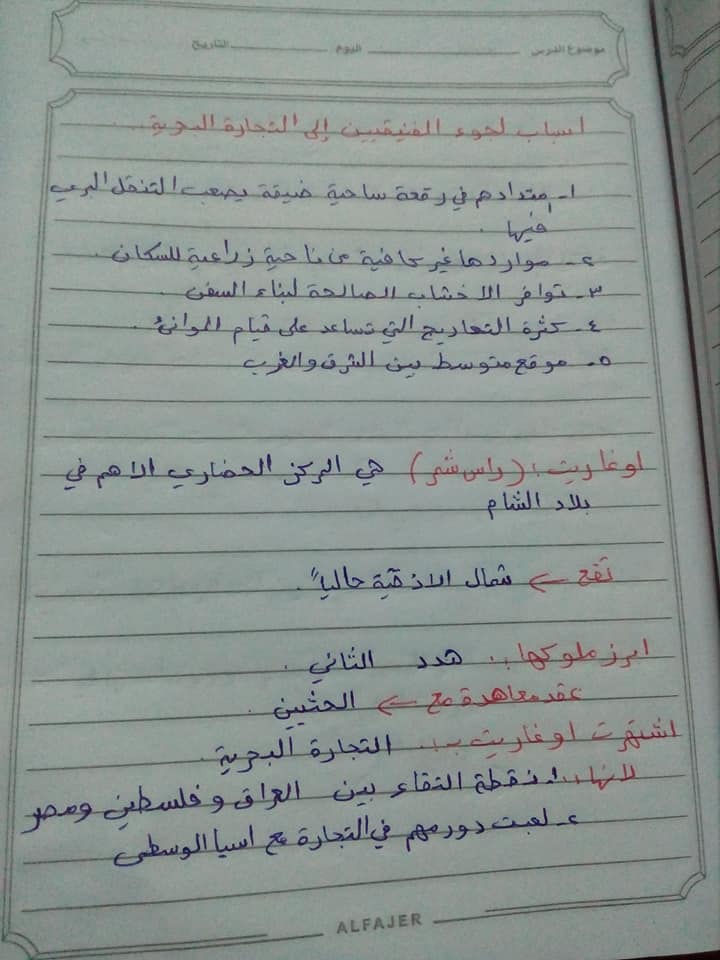 موضوع الدرس اليوم التاريخ
اسباب لجوء الفنيقيين إلى التجارة البحرية
١- امتدادهم في رقعة ساحية ضيقة يصعب التنقل البري
فيها.
٢- مواردها غير كافية من ناحية زراعية للسكان.
٣- توافر الاخشاب الصالحة لبناء السفن
٤- كثرة التعاريج التي تساعد على قيام الموانئ.
٥- موقع متوسط بين الشرق والغرب
اوغاريت: (راس شمر) هي المركز الحضاري الاهم في
بلاد الشام
تقع ← شمال الاذقية حالياً.
ابرز ملوكها: هدد الثاني.
عقد معاهدة مع ← الحثيين.
اشتهرت اوغاريت بـ: التجارة البحرية.
لانها: ١- نقطة التقاء بين العراق وفلسطين ومصر
٢- لعبت دور مهم في التجارة مع اسيا الوسطى
ALFAJER